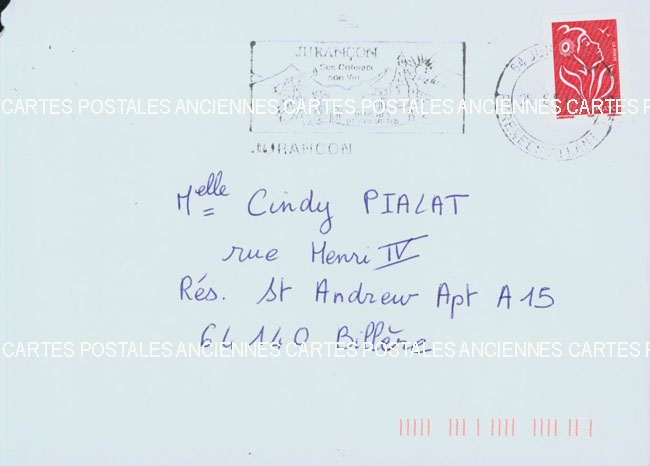 JURANÇON
Ses Coteaux
son Vin
JURANCON
CARTES POSTALES ANCIENNES CARTES POSTALES ANCIENNES CARTES P
Melle Cindy PIALAT
rue Henri IV
Rés. St Andrew Apt A 15
64 140 Billère
CARTES POSTALES ANCIENNES CARTES POSTALES ANCIENNES CARTES P